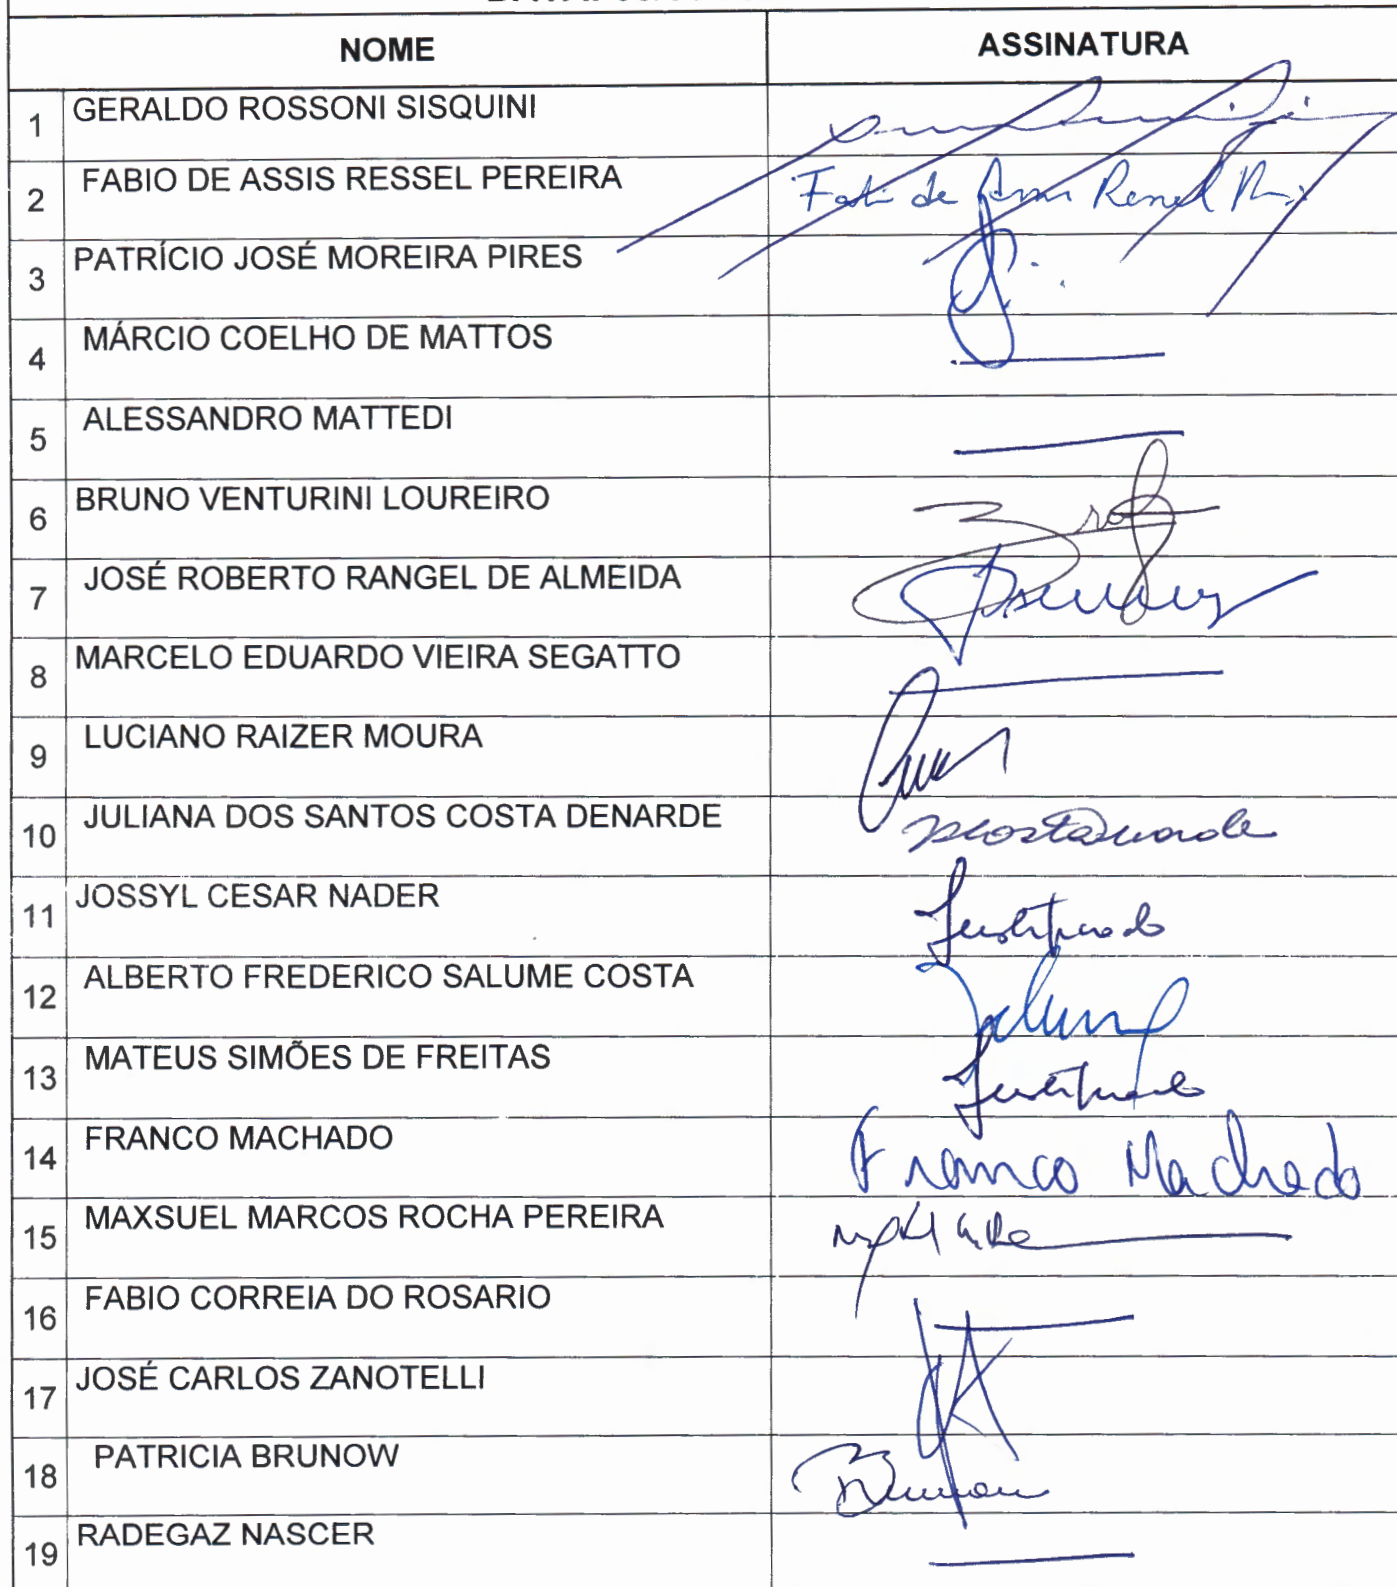 NOME ASSINATURA
1 GERALDO ROSSONI SISQUINI
2 FABIO DE ASSIS RESSEL PEREIRA Fabio de Assis Ressel
3 PATRÍCIO JOSÉ MOREIRA PIRES
4 MÁRCIO COELHO DE MATTOS
5 ALESSANDRO MATTEDI
6 BRUNO VENTURINI LOUREIRO
7 JOSÉ ROBERTO RANGEL DE ALMEIDA
8 MARCELO EDUARDO VIEIRA SEGATTO
9 LUCIANO RAIZER MOURA
10 JULIANA DOS SANTOS COSTA DENARDE
11 JOSSYL CESAR NADER Justificado
12 ALBERTO FREDERICO SALUME COSTA Salume
13 MATEUS SIMÕES DE FREITAS Justificado
14 FRANCO MACHADO Franco Machado
15 MAXSUEL MARCOS ROCHA PEREIRA
16 FABIO CORREIA DO ROSARIO
17 JOSÉ CARLOS ZANOTELLI
18 PATRICIA BRUNOW Brunow
19 RADEGAZ NASCER